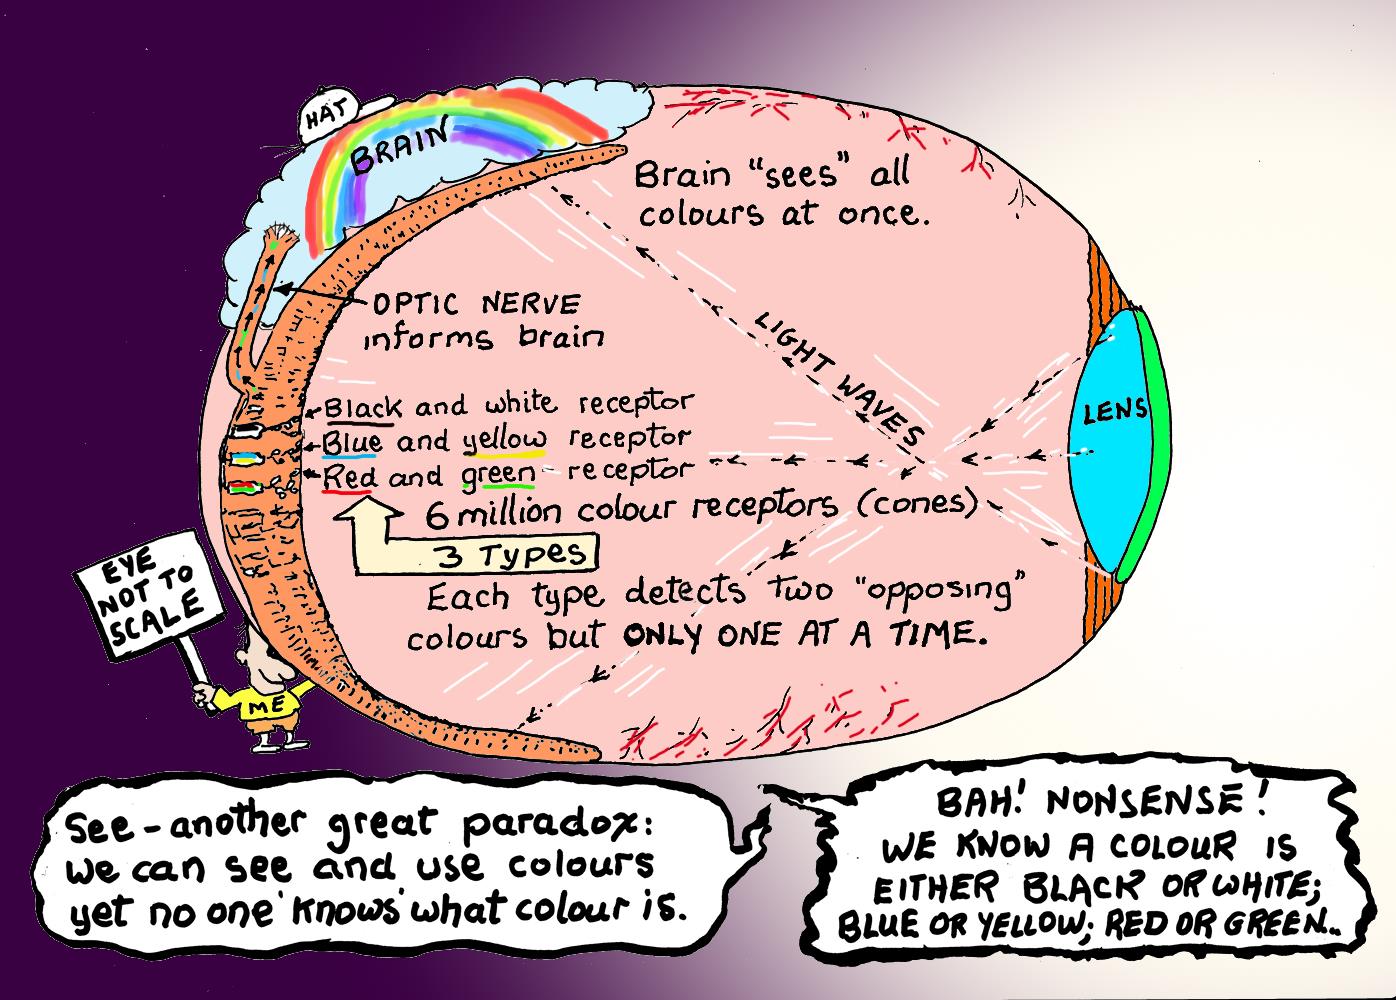 HAT
BRAIN
Brain “sees” all
colours at once.
OPTIC NERVE
informs brain
LIGHT WAVES
LENS
Black and white receptor
Blue and yellow receptor
Red and green - receptor
6 million colour receptors (cones)
3 Types
Each type detects two “opposing”
colours but ONLY ONE AT A TIME.
EYE
NOT TO
SCALE
ME
See - another great paradox:
we can see and use colours
yet no one 'knows' what colour is.
BAH! NONSENSE!
WE KNOW A COLOUR IS
EITHER BLACK OR WHITE;
BLUE OR YELLOW; RED OR GREEN...